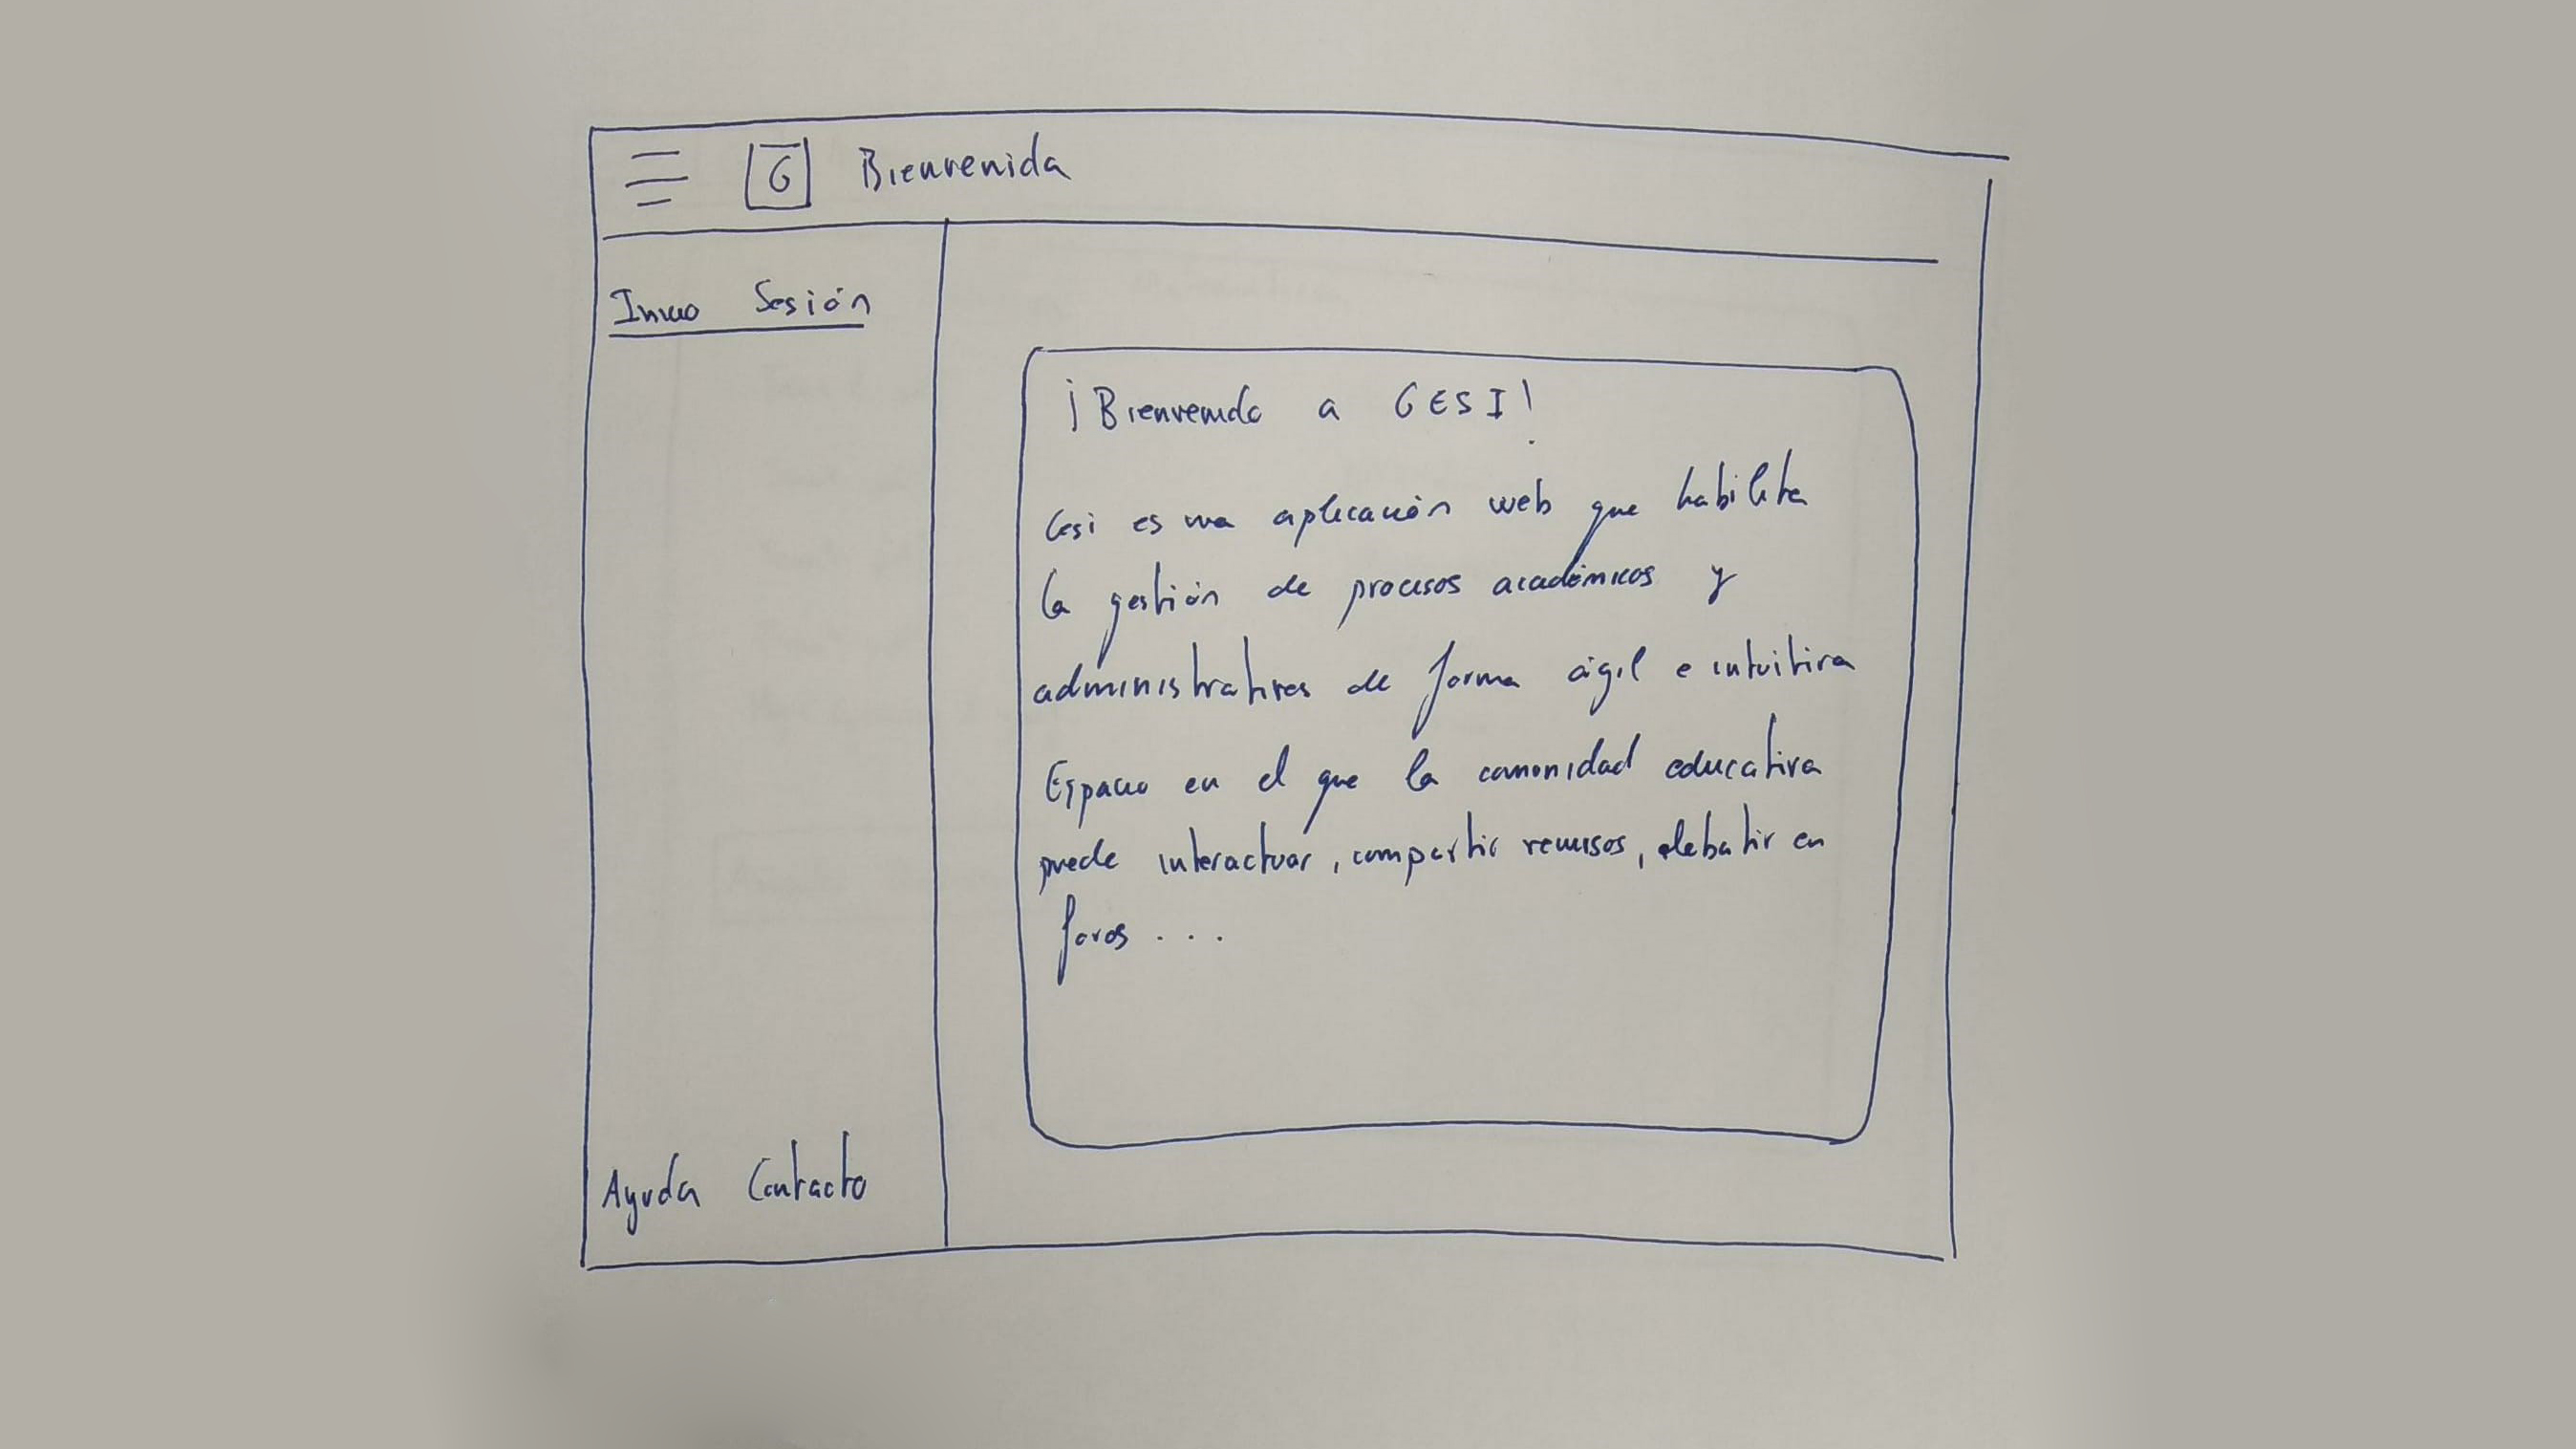 G Bienvenida
Inicio Sesión
¡Bienvenido a GESI!
Gesi es una aplicación web que habilita
la gestión de procesos académicos y
administrativos de forma ágil e intuitiva
Espacio en el que la comunidad educativa
puede interactuar, compartir recursos, debatir en
foros...
Ayuda Contacto